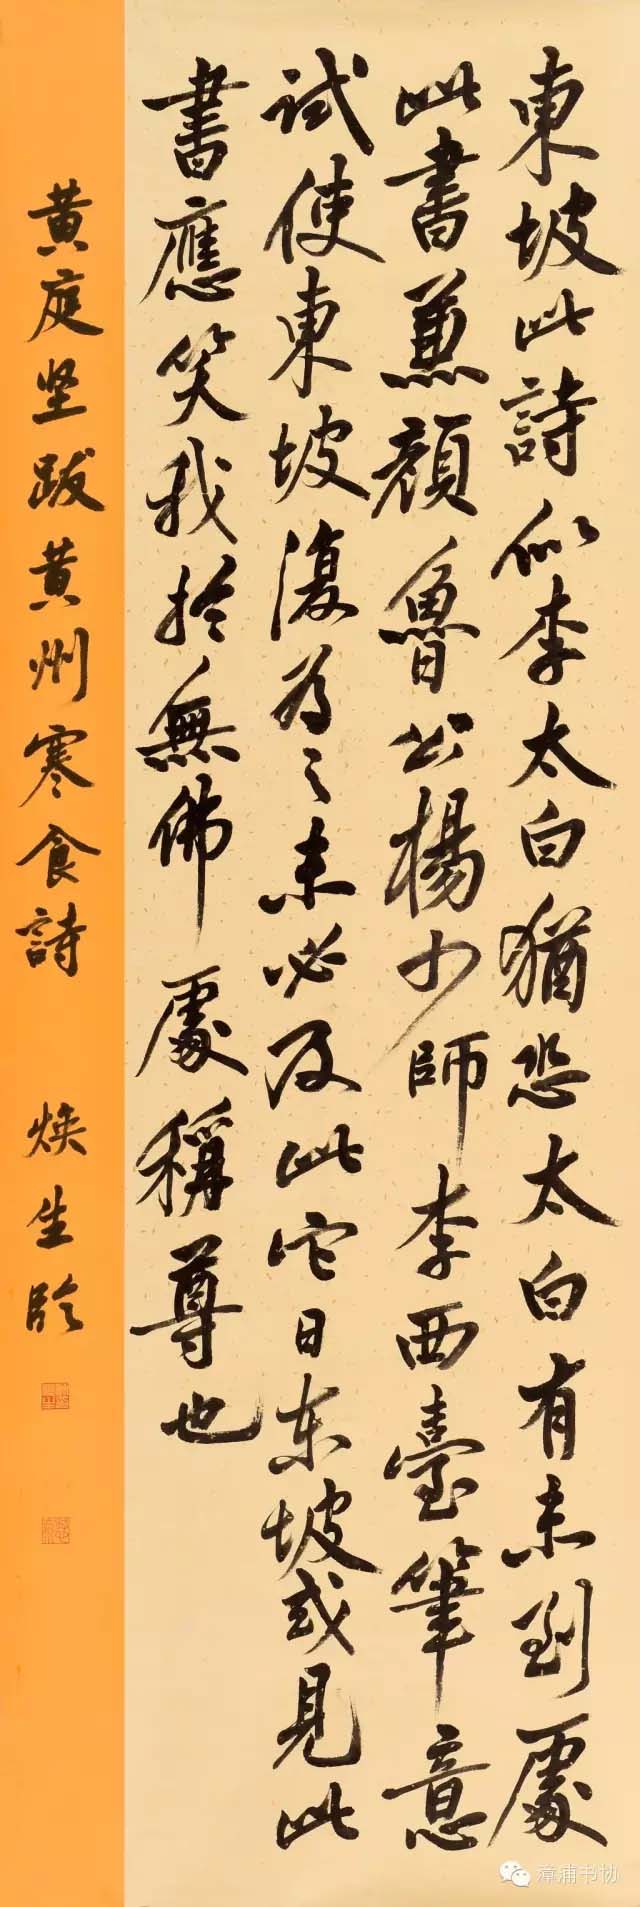 東坡此詩似李太白猶恐太白有未到處
此書兼顏魯公楊少師李西臺筆意
試使東坡復為之未必及此它日东坡或見此
書應笑我於無佛處稱尊也
黄庭坚跋黄州寒食詩 焕生臨
漳浦书协